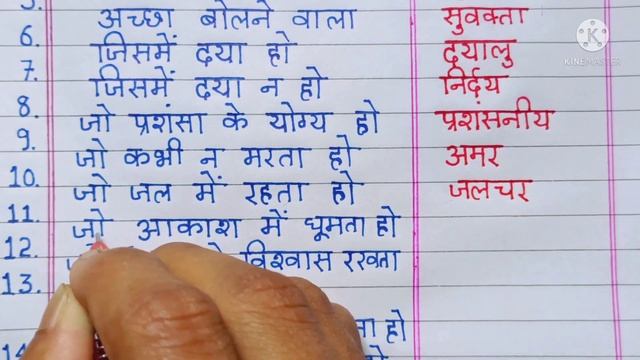 5. अच्छा बोलने वाला सुवक्ता
6. जिसमें दया हो दयालु
7. जिसमें दया न हो निर्दय
8. जो प्रशंसा के योग्य हो प्रशंसनीय
9. जो कभी न मरता हो अमर
10. जो जल में रहता हो जलचर
11. जो आकाश में घूमता हो
12. विश्वास रखता
13.
ता हो
14
KINEMASTER